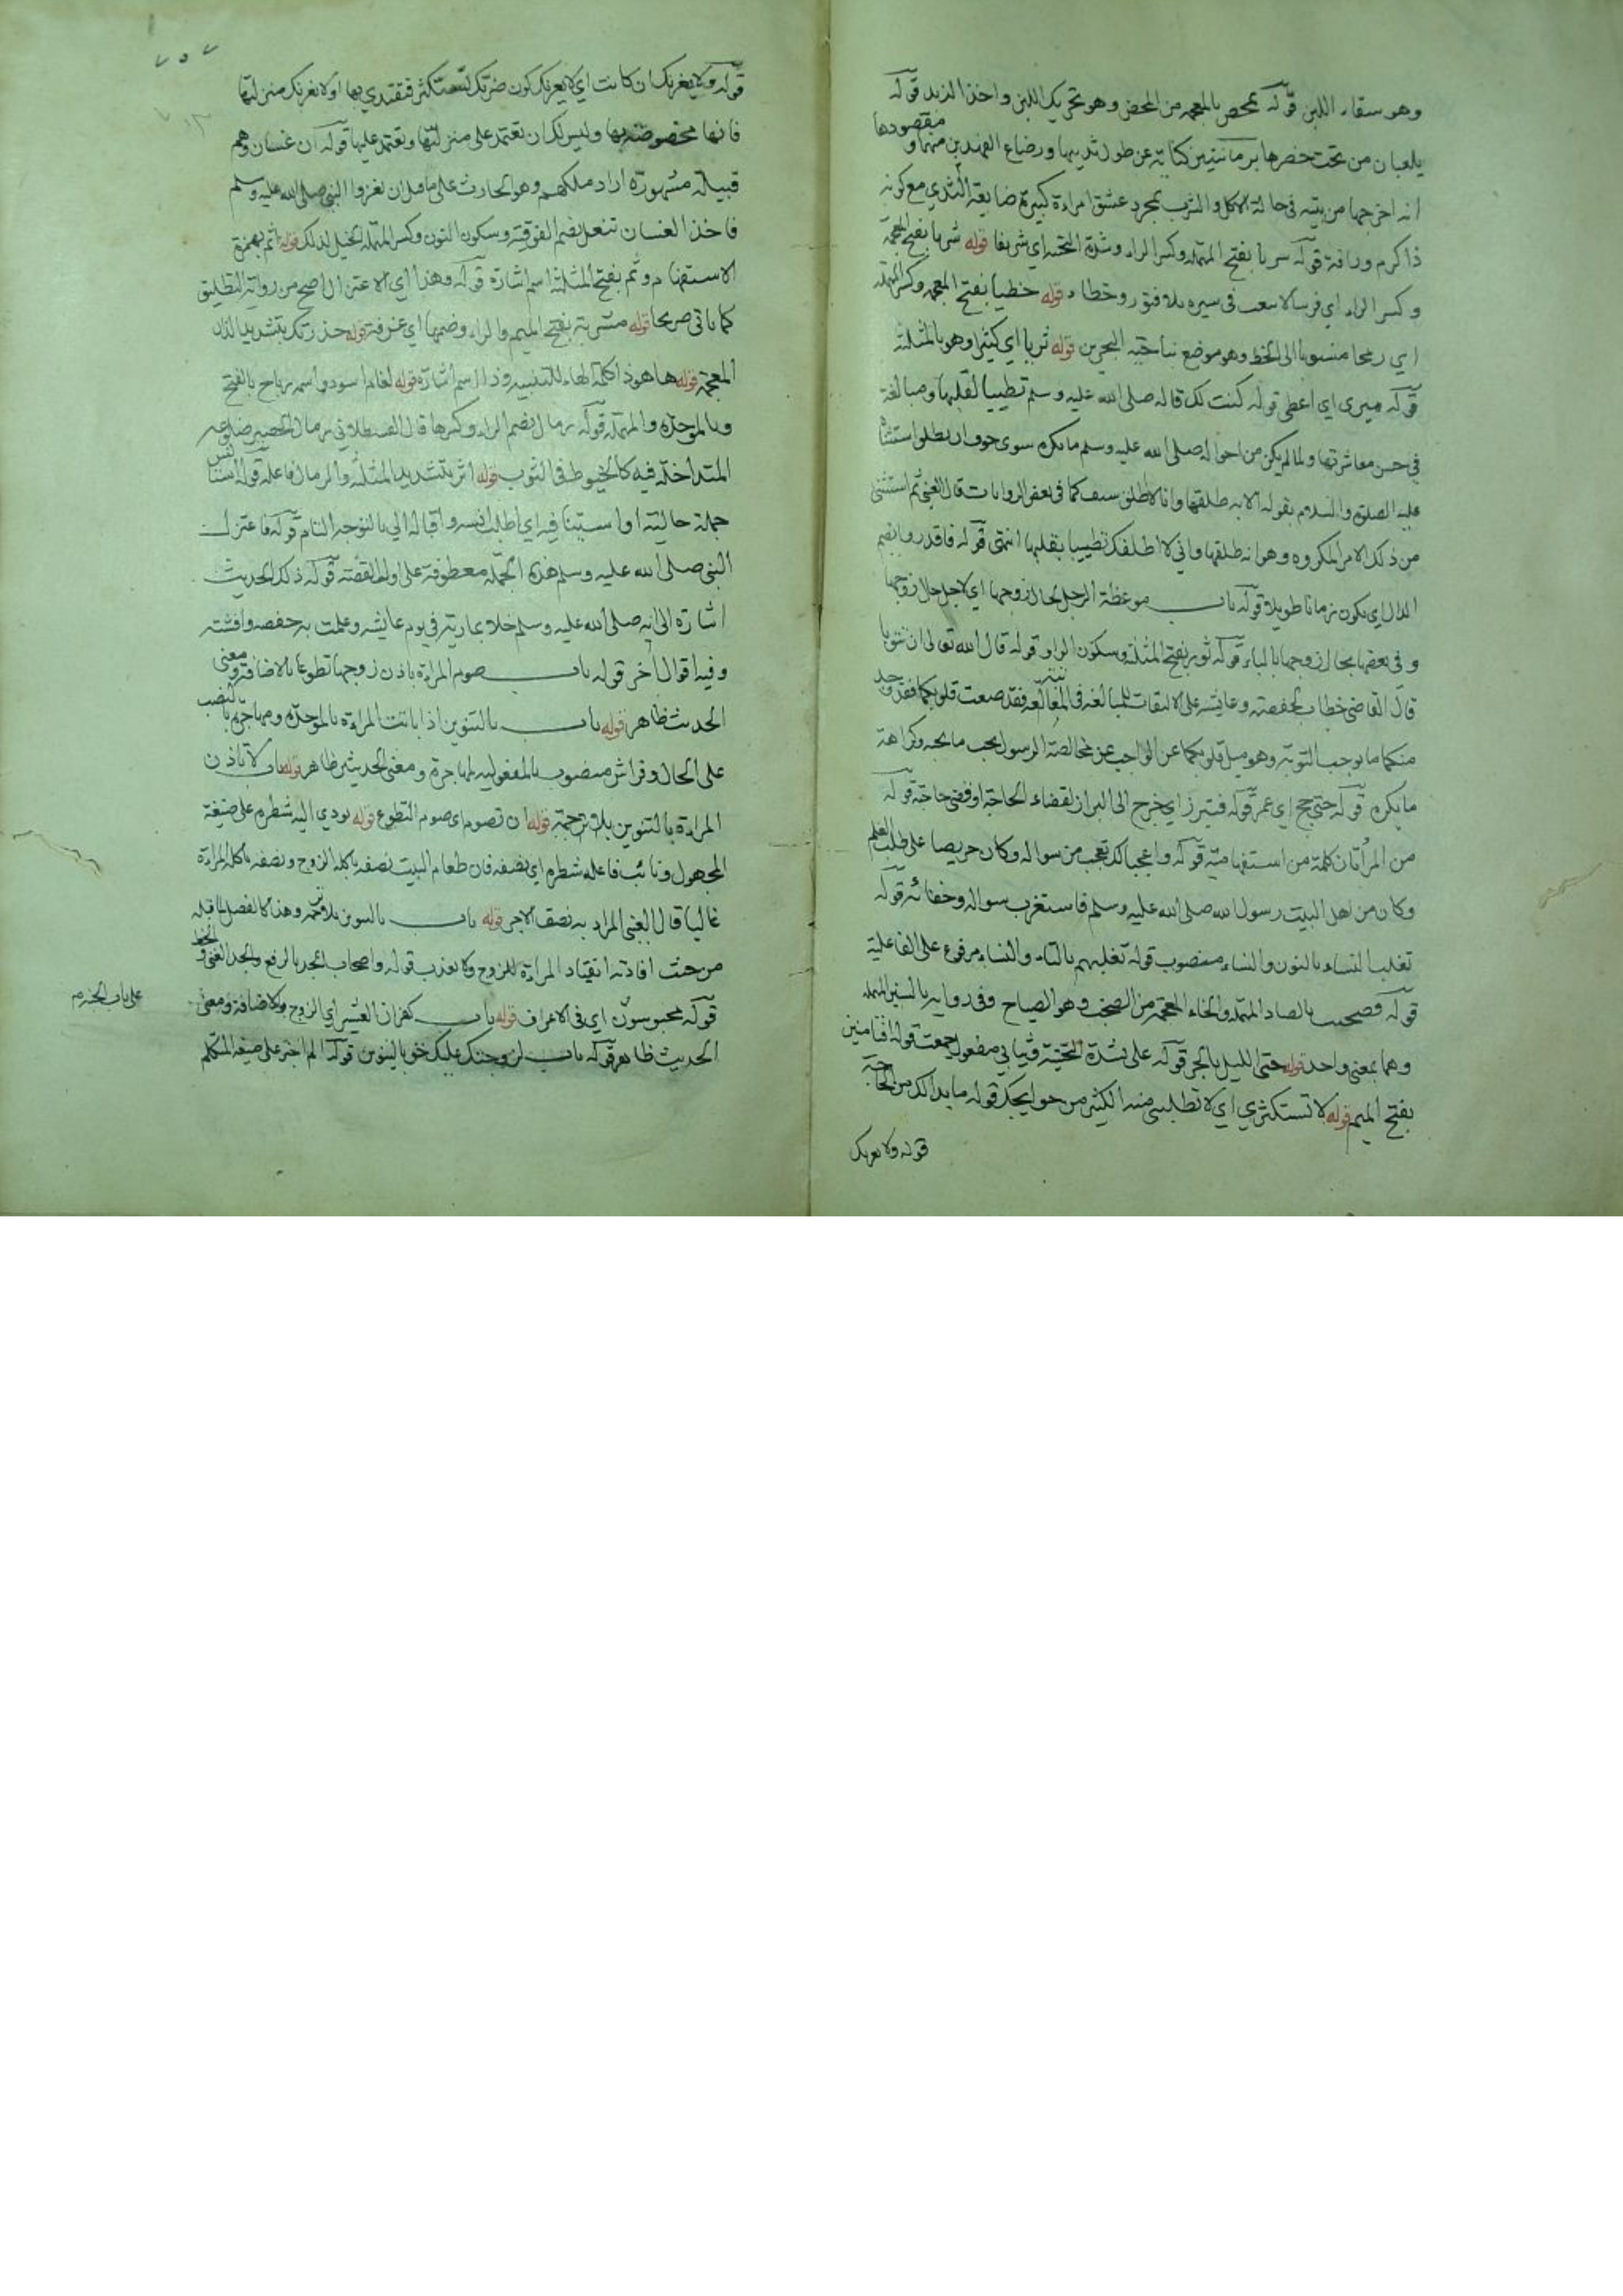 وهو سقاء اللبن قوله تمخض بالمعجمه من المخض وهو تحريك اللبن واخذ الزبد قوله
يلعبان من تحت خصرها برمانتين كناية عن طول ثدييها ورضاع الفهدين منهما و مقصودها
انه اخرجها من بيته في حالة الاكل والشرب بمجرد عشق امراءة كبيرة ضايعة الثدي مع كونه
ذا كرم ورافة قوله سريا بفتح المهمله وكسر الراء وشدة التحتيه اي شريفا قوله شريا بفتح المعجمة
وكسر الراء اي فرسا لا يتعب في سيره بلا فتور وخطاء قوله خطيا بفتح المعجمه وكسر المهمله
اي رمحا منسوبا الى الخط وهو موضع بناحيه البحرين قوله ثريا اي كثيرا وهو بالمثلثة
قوله ميرى اي اعطى قوله كنت لك قاله صلى الله عليه وسلم تطييبا لقلبها ومبالغة
في حسن معاشرتها ولما لم يكن من احواله صلى الله عليه وسلم ما يكره سوى خوف ان يطلق استثنا
عليه الصلوة والسلام بقوله الا انه طلقها وانا لا اطلق كما في بعض الروايات قال العيني ثم استثنى
من ذلك الامر المكروه وهو انه طلقها واني لا اطلقك تطييبا بقلبها انتهى قوله فاقدروا بضم
الدال اي يكون زمانا طويلا قوله باب موعظة الرجل لحال زوجها اي لاجل حال زوجها
وفي بعضها بحال زوجها بالباء قوله ثور بفتح المثلثة وسكون الواو قوله قال الله تعالى ان تتوبا
قال القاضي خطاب لحفصة وعايشه على الالتفات للمبالغة في المعاتبة فقد صغت قلوبكما فقد وجد
منكما ما يوجب التوبة وهو ميل قلوبكما عن الواجب عن مخالصة الرسول بحب ما يحبه وكراهة
ما يكره قوله حتى حج اي عمر قوله فتبرز اي خرج الى البراز لقضاء الحاجة او قضى حاجته قوله
من المراتان كلمة من استفهامية قوله واعجبا لك تعجب من سواله وكان حريصا على طلب العلم
وكان من اهل البيت رسول الله صلى الله عليه وسلم فاستغرب سواله وخفائه قوله
تغلب النساء بالنون والنساء منصوب قوله تغلبهم بالتاء والنساء مرفوع على الفاعلية
قوله فصخبت بالصاد المهمله والخاء المعجمة من الصخب وهو الصياح وفي رواية بالسين المهمله
وهما بمعنى واحد قوله حتى الليل بالجر قوله على بشدة التحتية وثيابي مفعول جمعت قوله افتامنين
بفتح الميم قوله لا تستكثري اي لا تطلبي منه الكثير من حوايجك قوله ما بدا لك من الحاجة
قوله ولا يغرنك
قوله ولا يغرنك ان كانت اي لا يغرنك كون ضرتك تستكثر فتقتدي بها او لا يغرنك منزلتها
فانها مخصوصة بها وليس لك ان تعتمد على منزلتها وتعتمد عليها قوله ان غسان وهم
قبيلة مشهورة اراد ملكهم وهو الحارث على ما قيل ان يغزوا النبي صلى الله عليه وسلم
فاخذ الغسان تنعل بضم الفوقية وسكون النون وكسر المهمله الخيل لذلك قوله اثم بهمزة
الاستفهام وثم بفتح المثلثة اسم اشارة قوله وهذا اي الاعتزال اصح من رواية التطليق
كما ياتي صريحا قوله مشربة بفتح الميم والراء وضمها اي غرفة قوله حذرتك بتشديد الذال
المعجمة قوله ها هو ذا كلمة الهاء للتنبيه وذا اسم اشارة قوله لغلام اسود واسمه رباح بالفتح
وبالموحدة والمهمله قوله رمال بضم الراء وكسرها قال القسطلاني رمال الحصير ضلوعه
المتداخلة فيه كالخيوط في الثوب قوله اثر بتشديد المثلثه والرمال فاعله قوله استانس
جملة حالية او استينافية اي اطلب انسه واقباله الي بالتوجه التام قوله فاعتزل
النبي صلى الله عليه وسلم هذه الجملة معطوفة على اول القصة قوله ذلك الحديث
اشارة الى انه صلى الله عليه وسلم خلا بمارية في يوم عايشه وعلمت به حفصه وافشته
وفيه اقوال اخر قوله باب صوم المراة باذن زوجها تطوعا بالاضافة ومعنى
الحديث ظاهر قوله باب بالتنوين اذا باتت المراءة بالموحدة ومهاجرة بالنصب
على الحال وفراش منصوب بالمفعولية لمهاجرة ومعنى الحديثين ظاهر قوله باب لا تاذن
المراءة بالتنوين بلا ترجمة قوله ان تصوم اي صوم التطوع قوله يودي اليه شطره على صيغة
المجهول ونائب فاعله شطره اي نصفه فان طعام البيت نصفه ياكله الزوج ونصفه ياكله المراءة
غالبا قال العيني المراد به نصف الاجر قوله باب بالتنوين بلا ترجمه وهذا كالفصل لما قبله
من حيث افادته انقياد المراءة للزوج قوله واصحاب الجد بالرفع والجد الغنى والحظ
قوله محبوسون اي في الاعراف قوله باب كفران العشير اي الزوج والاضافة ومعنى
الحديث ظاهر قوله باب لزوجك عليك حق بالتنوين قوله الم اخبر على صيغة المتكلم
على باب الجنة م